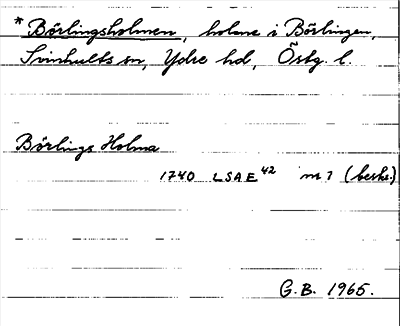 * Börlingsholmen, holme i Börlingen,
Svinhults sn, Ydre hd, Östg. l.
Börlings Holma
1740 LSA E 42 nr 1 (beskr.)
G.B. 1965.